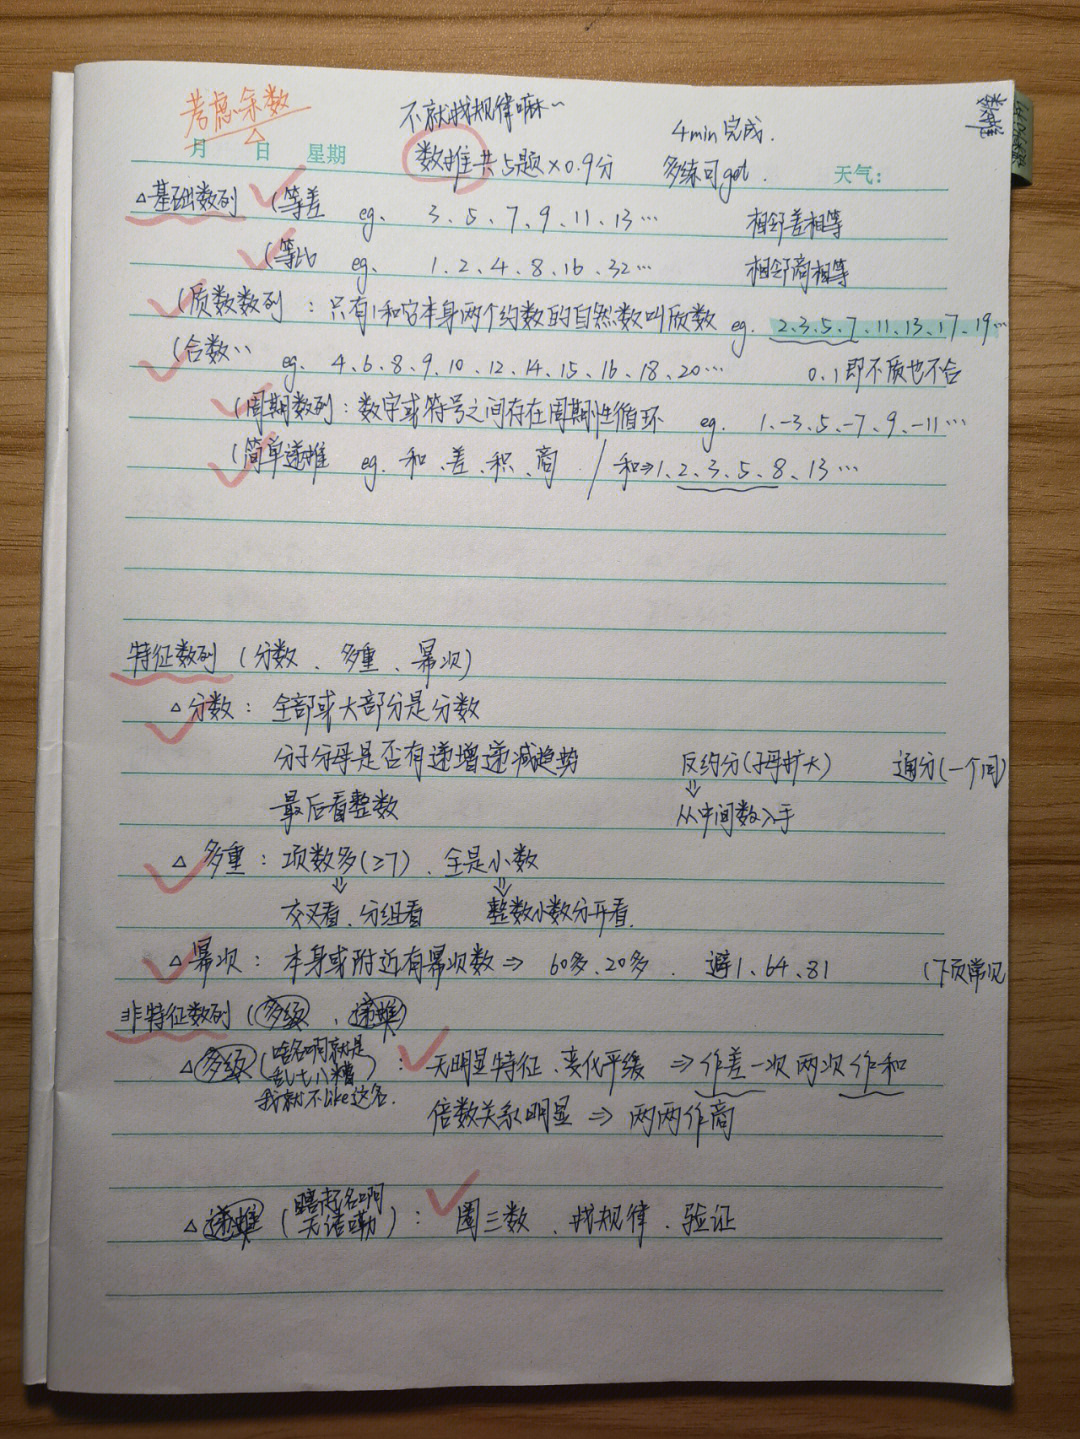 考虑余数
不就找规律嘛~
4min完成.
月 日 星期
数推共5题×0.9分
多练可get.
天气:
△基础数列 (等差 eg、 3、5、7、9、11、13… 相邻差相等
(等比 eg、 1、2、4、8、16、32… 相邻商相等
(质数数列:只有1和它本身两个约数的自然数叫质数 eg. 2、3、5、7、11、13、17、19…
(合数〃 eg、4、6、8、9、10、12、14、15、16、18、20… 0、1即不质也不合
(周期数列:数字或符号之间存在周期性循环 eg. 1、-3、5、-7、9、-11…
(简单递推 eg、和、差、积、商 / 和⇒1、2、3、5、8、13…
特征数列(分数、多重、幂次)
△分数:全部或大部分是分数
分子分母是否有递增递减趋势 反约分(子母扩大) 通分(一个同)
最后看整数 ⇓从中间数入手
△多重:项数多(≥7)、全是小数
⇓ ⇓
交叉看、分组看 整数小数分开看.
△幂次:本身或附近有幂次数⇒ 60多、20多. 避1、64、81 (下页常见
非特征数列(多级、递推)
△多级(啥名啊就是乱七八糟我就不like这名.):无明显特征、变化平缓 ⇒ 作差一次两次 作和
倍数关系明显 ⇒ 两两作商
△递推(瞎起名啊无语嘞):圈三数、找规律、验证